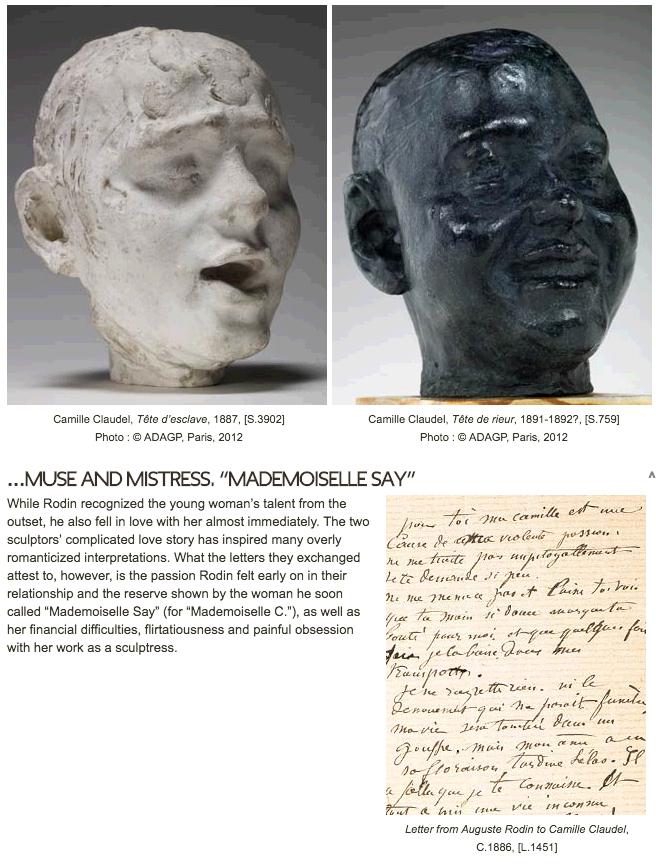 Camille Claudel, Tête d'esclave, 1887, [S.3902]
Photo : © ADAGP, Paris, 2012
Camille Claudel, Tête de rieur, 1891-1892?, [S.759]
Photo : © ADAGP, Paris, 2012
...MUSE AND MISTRESS. "MADEMOISELLE SAY"
While Rodin recognized the young woman's talent from the
outset, he also fell in love with her almost immediately. The two
sculptors' complicated love story has inspired many overly
romanticized interpretations. What the letters they exchanged
attest to, however, is the passion Rodin felt early on in their
relationship and the reserve shown by the woman he soon
called "Mademoiselle Say" (for "Mademoiselle C."), as well as
her financial difficulties, flirtatiousness and painful obsession
with her work as a sculptress.
pour toi ma camille est une
cause de violente passion.
ne me traite pas impitoyablement
te demande si peu.
ne me menace pas et
que ta main si douce marque ta
bonté pour moi et que quelques fois
je la baise dans mes
transports.
Je ne regrette rien. ni le
denouement qui me parait funèbre
ma vie sera tombée dans un
gouffre. mais mon ame a eu
sa floraison tardive hélas. Il
a fallu que je te connaisse. Et
tout a pris une vie inconnue
Letter from Auguste Rodin to Camille Claudel,
C.1886, [L.1451]